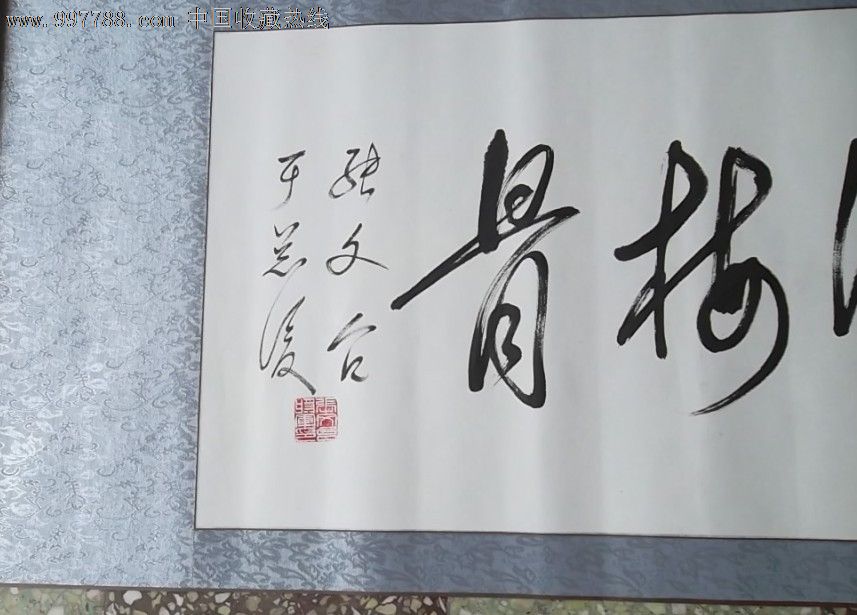 www.997788.com 中国收藏热线
梅骨
张文台
于总后